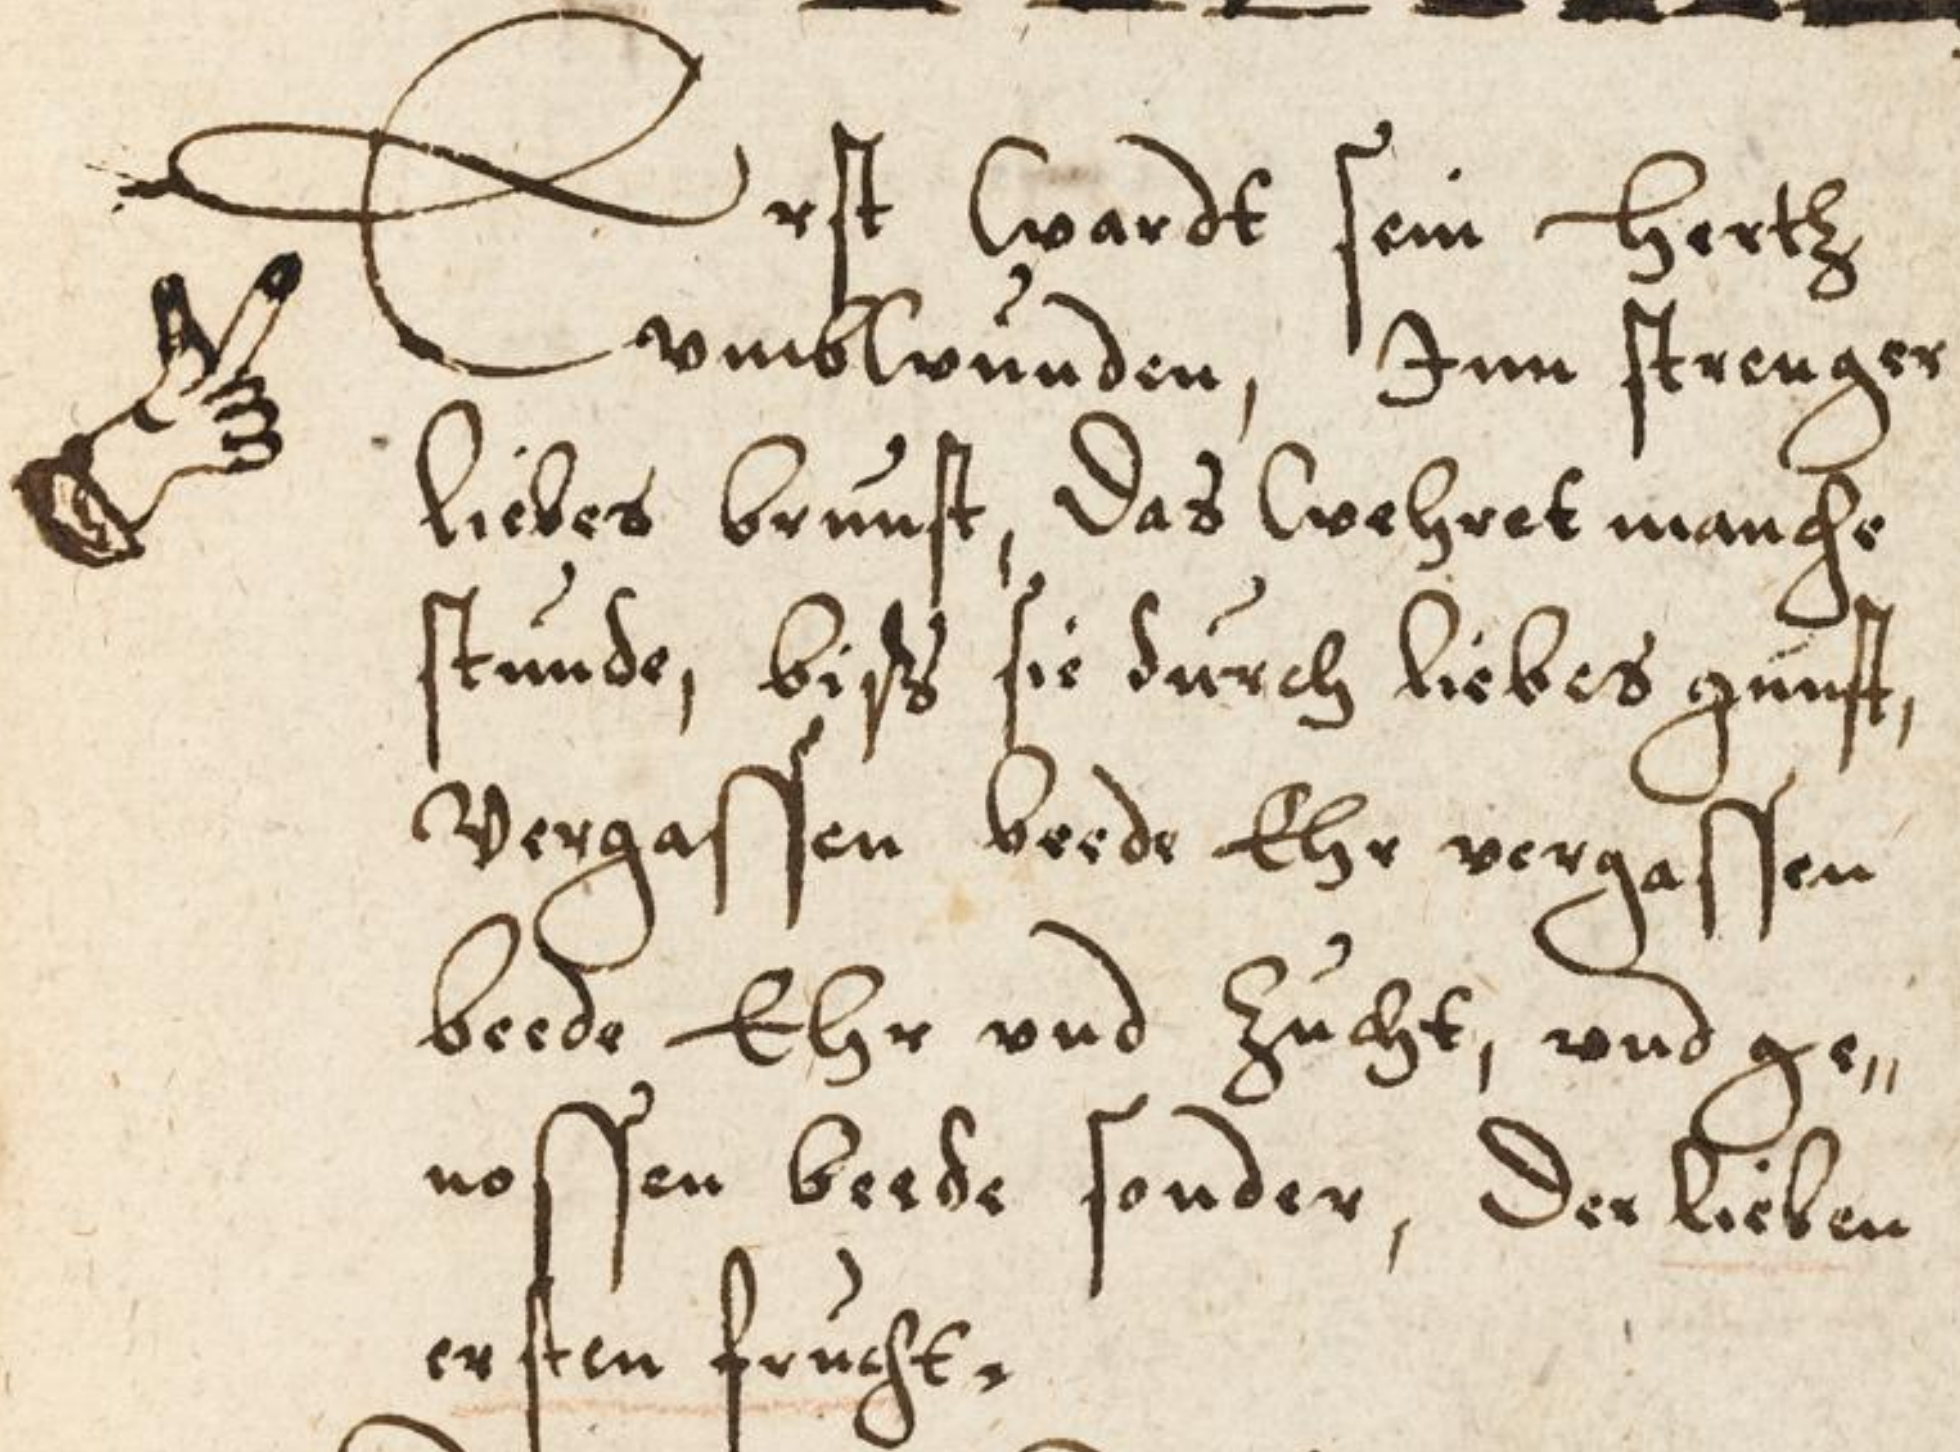 Erst wardt sein Hertz
vmbwunden, Inn strenger
liebes brunst, Das wehret manche
stunde, biß sie durch liebes gunst,
Vergassen beede Ehr vergassen
beede Ehr vnd Zucht, vnd ge„
nossen beede sonder, Der lieben
ersten frucht.